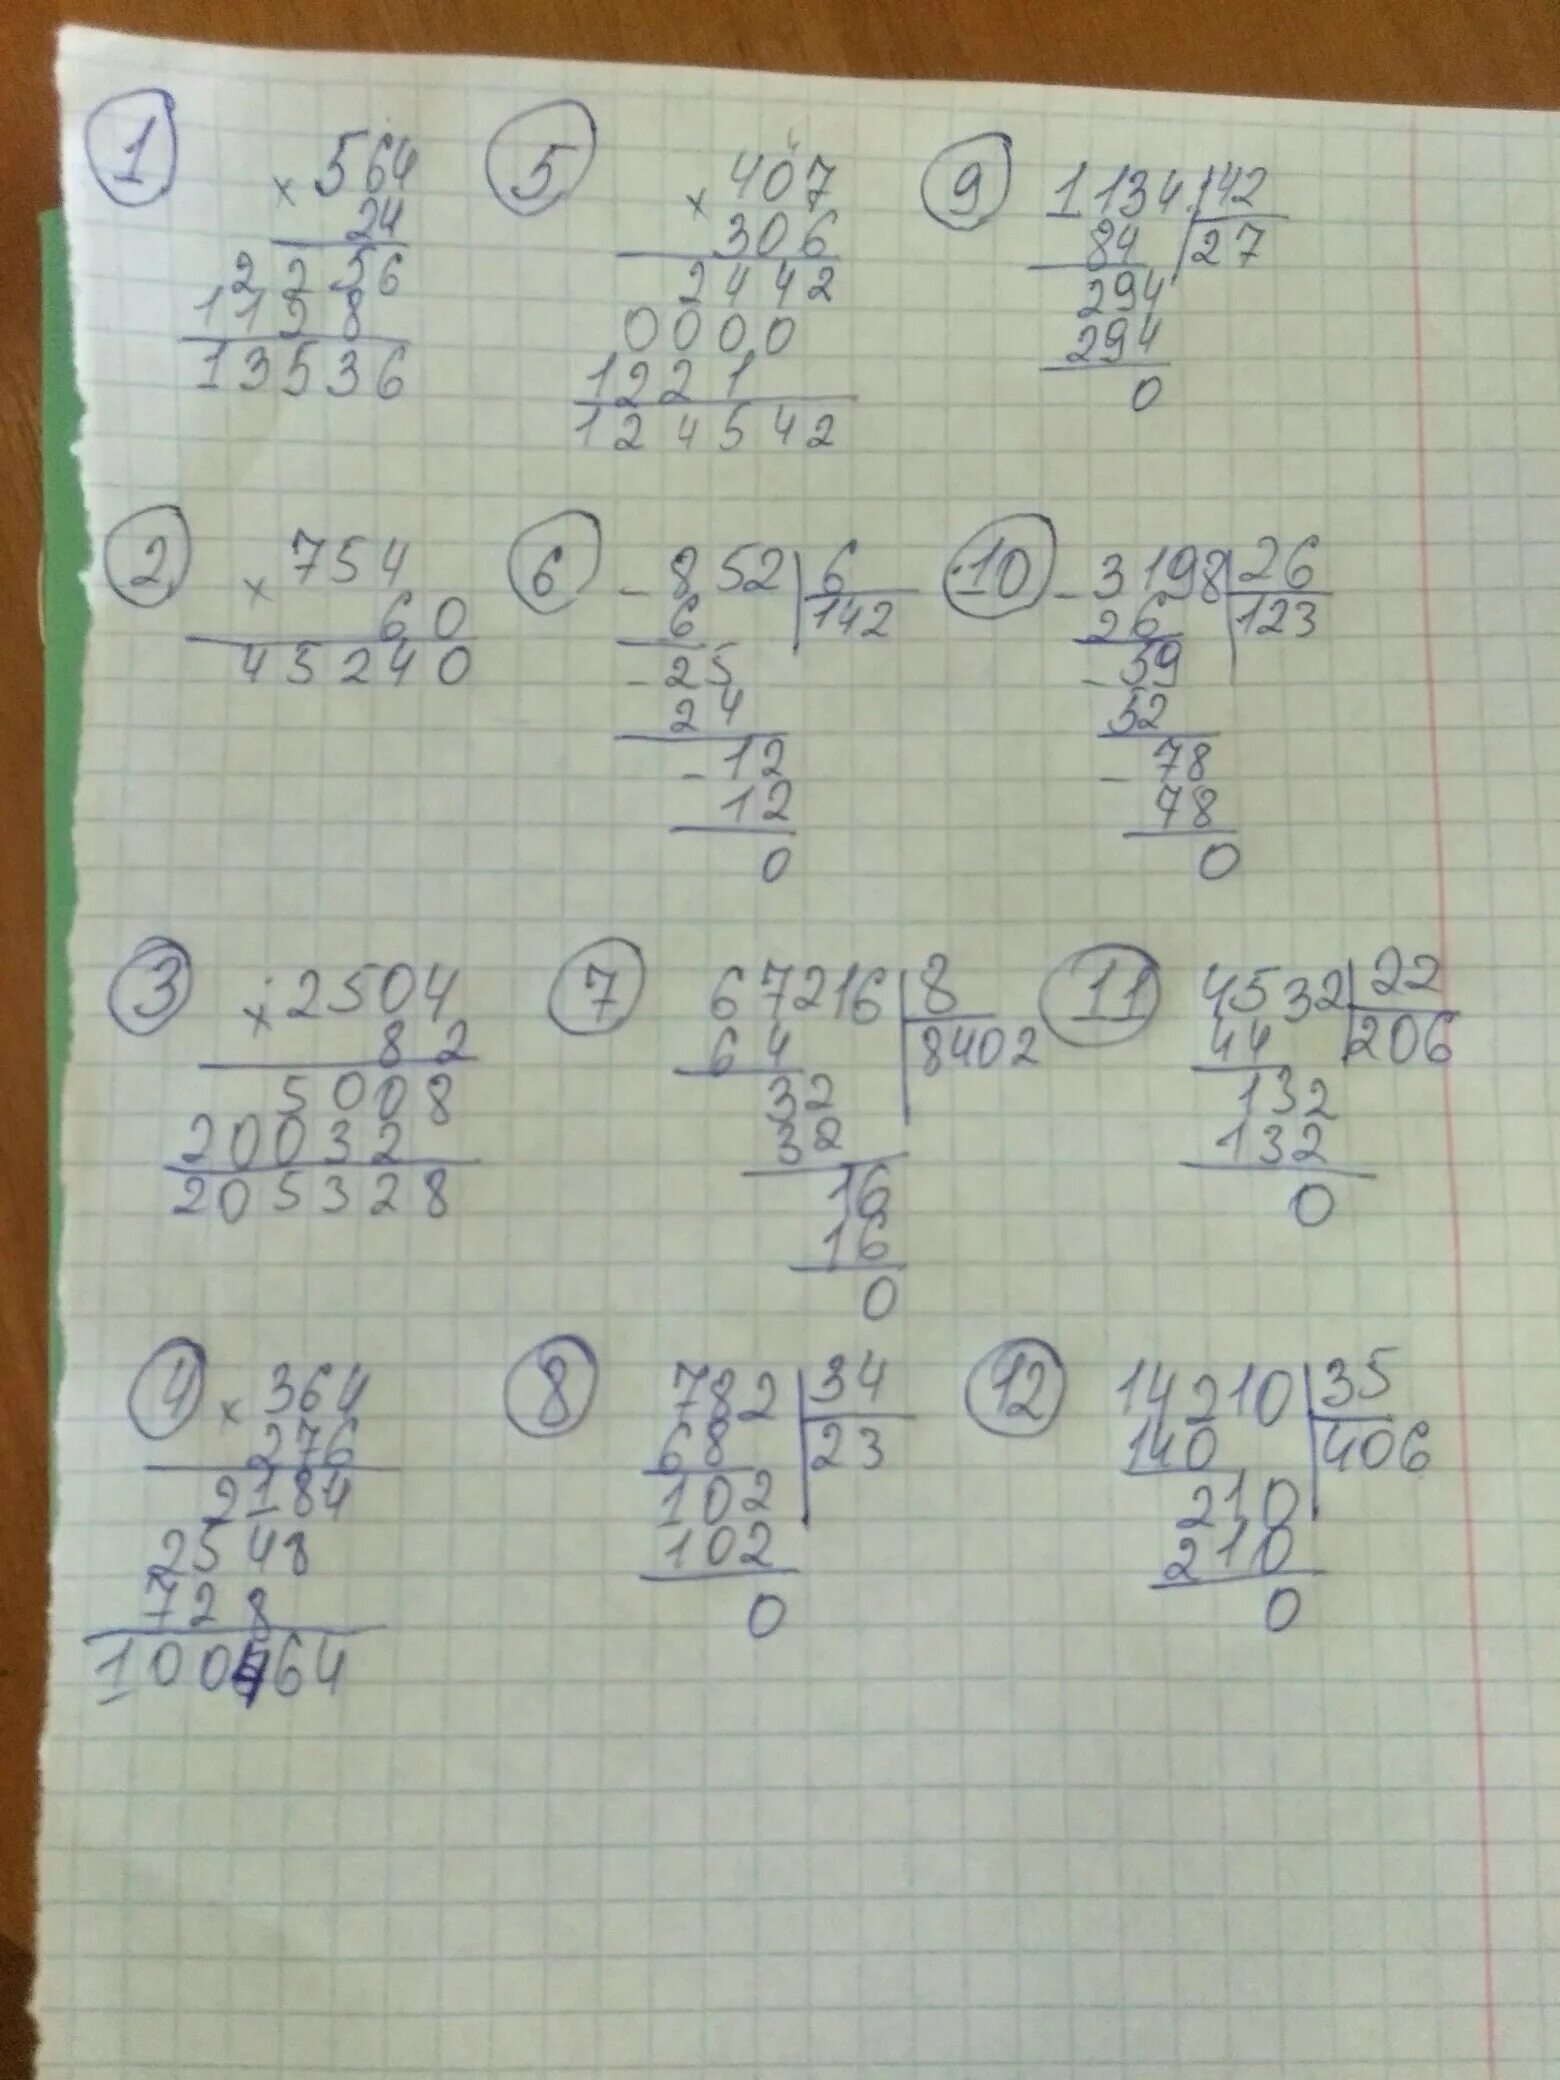 1
× 564
24
2256
1128
13536
2
× 754
60
45240
3
× 2504
82
5008
20032
205328
4
× 364
276
2184
2548
728
100464
5
× 407
306
2442
0000
1221
124542
6
- 852 6
6 142
- 25
24
- 12
12
0
7
67216 8
64 8402
32
32
16
16
0
8
782 34
68 23
102
102
0
9
1134 42
84 27
294
294
0
10
- 3198 26
26 123
- 59
52
- 78
78
0
11
4532 22
44 206
132
132
0
12
14210 35
140 406
210
210
0